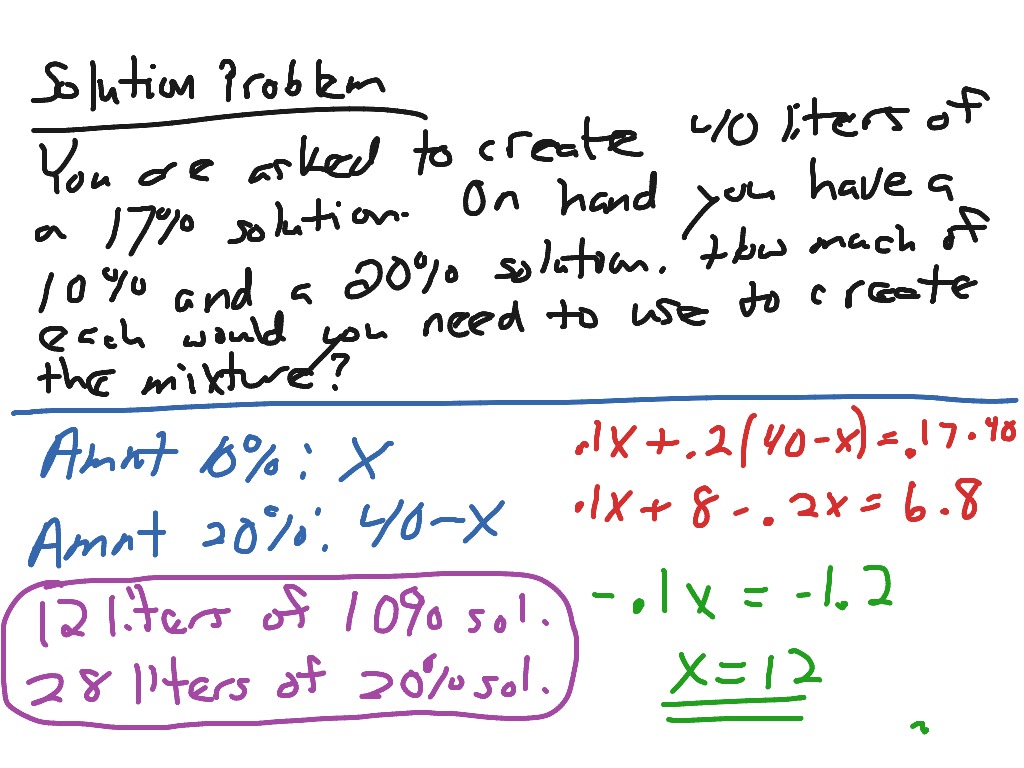 Solution Problem
You are asked to create 40 liters of
a 17% solution. On hand you have a
10% and a 20% solution. How much of
each would you need to use to create
the mixture?
Amnt 10%: x
Amnt 20%: 40-x
12 liters of 10% sol.
28 liters of 20% sol.
.1x + .2(40-x) = .17·40
.1x + 8 - .2x = 6.8
-.1x = -1.2
x = 12